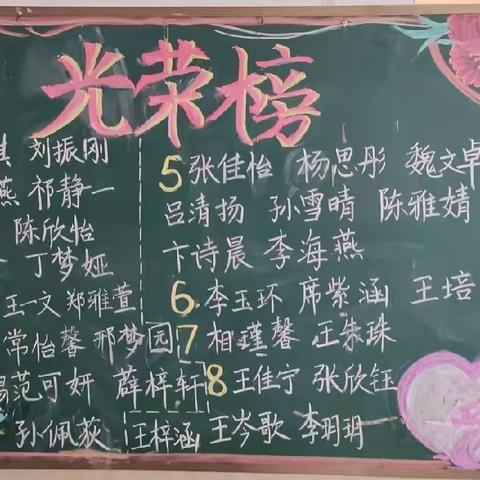 光荣榜
刘振刚
燕 祁静一
陈欣怡
丁梦娅
王一文 郑雅萱
常怡馨 邢梦园
范可妍 薛梓轩
孙佩荻 王梓涵
5 张佳怡 杨思彤 魏文卓
吕清扬 孙雪晴 陈雅婧
卞诗晨 李海燕
6 李玉环 席紫涵 王培
7 相瑾馨 王朱珠
8 王佳宁 张欣钰
王岑歌 李玥玥